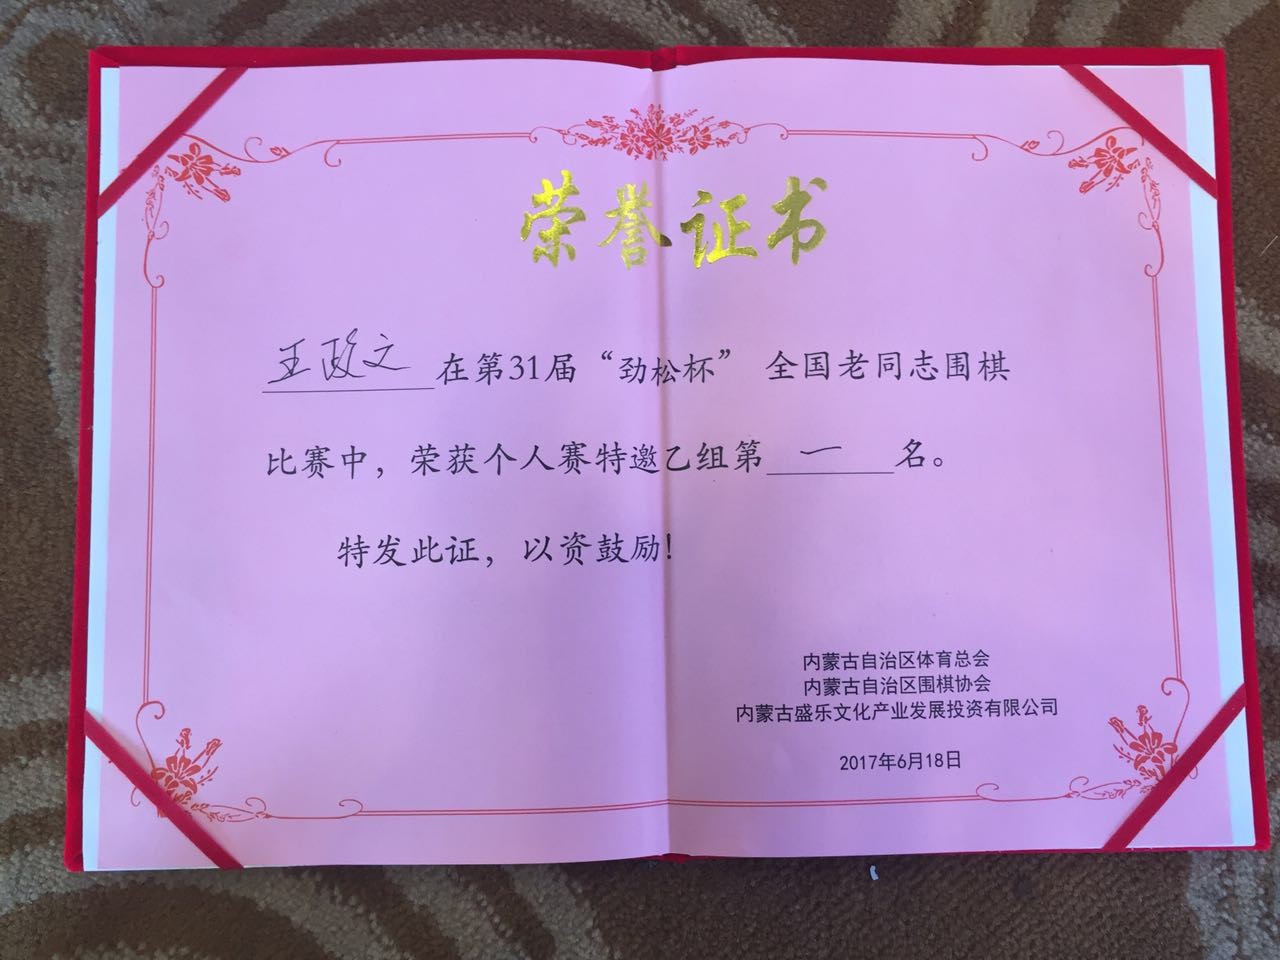 荣誉证书
王政文在第31届“劲松杯” 全国老同志围棋
比赛中，荣获个人赛特邀乙组第一名。
特发此证，以资鼓励！
内蒙古自治区体育总会
内蒙古自治区围棋协会
内蒙古盛乐文化产业发展投资有限公司
2017年6月18日